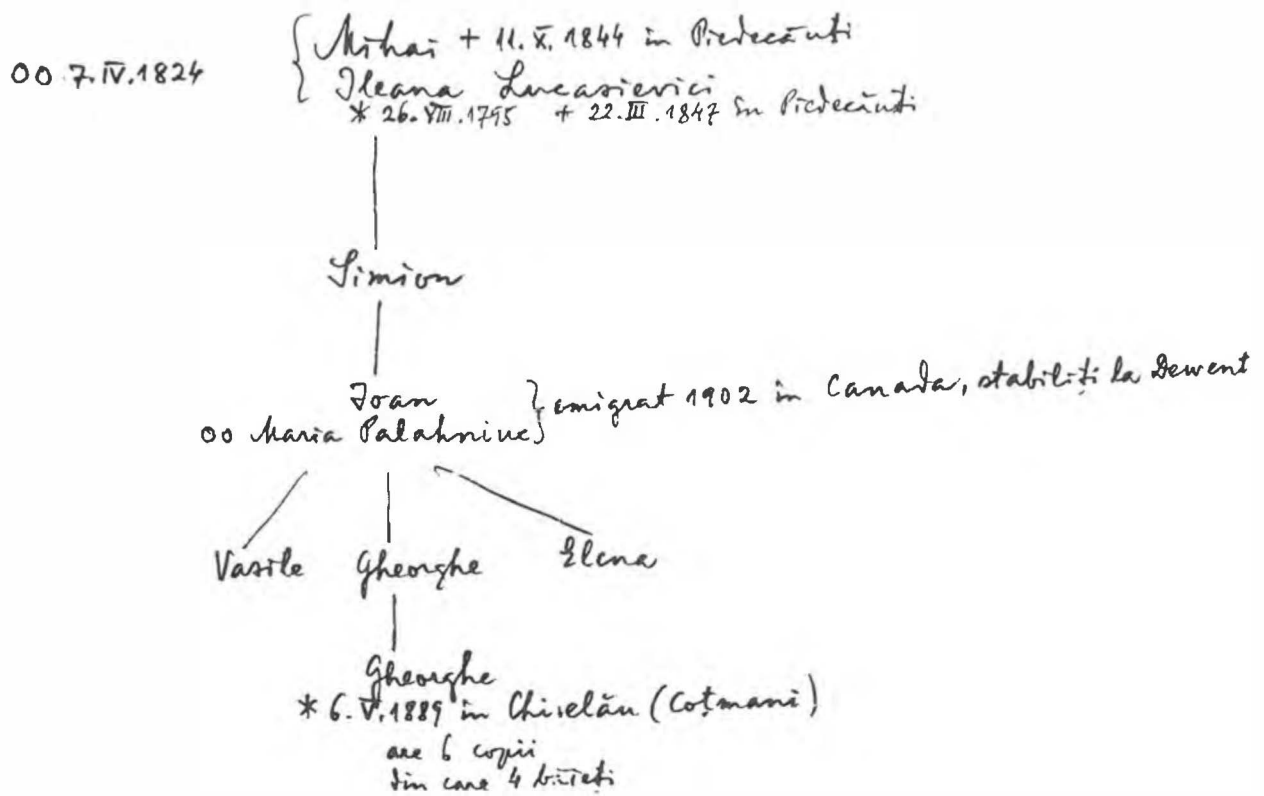 oo 7.IV.1824
Mihai + 11.X.1844 în Piedecăuți
Ileana Lucasievici
* 26.VIII.1795 + 22.III.1847 în Piedecăuți
Simion
Ioan
oo Maria Palahniuc
emigrat 1902 în Canada, stabiliți la Dewent
Vasile Gheorghe Elena
Gheorghe
* 6.V.1889 în Chiselău (Coțmani)
are 6 copii
din care 4 băieți